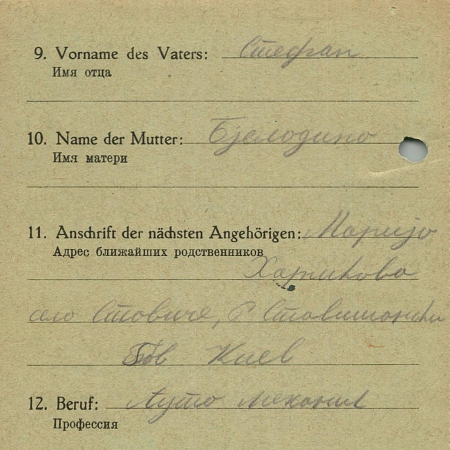 9. Vorname des Vaters: Стефан
Имя отца
10. Name der Mutter:
Имя матери
11. Anschrift der nächsten Angehörigen: Маријо
Адрес ближайших родственников
Харикова
село Ставиче,
Киев
12. Beruf: Ауто механик
Профессия